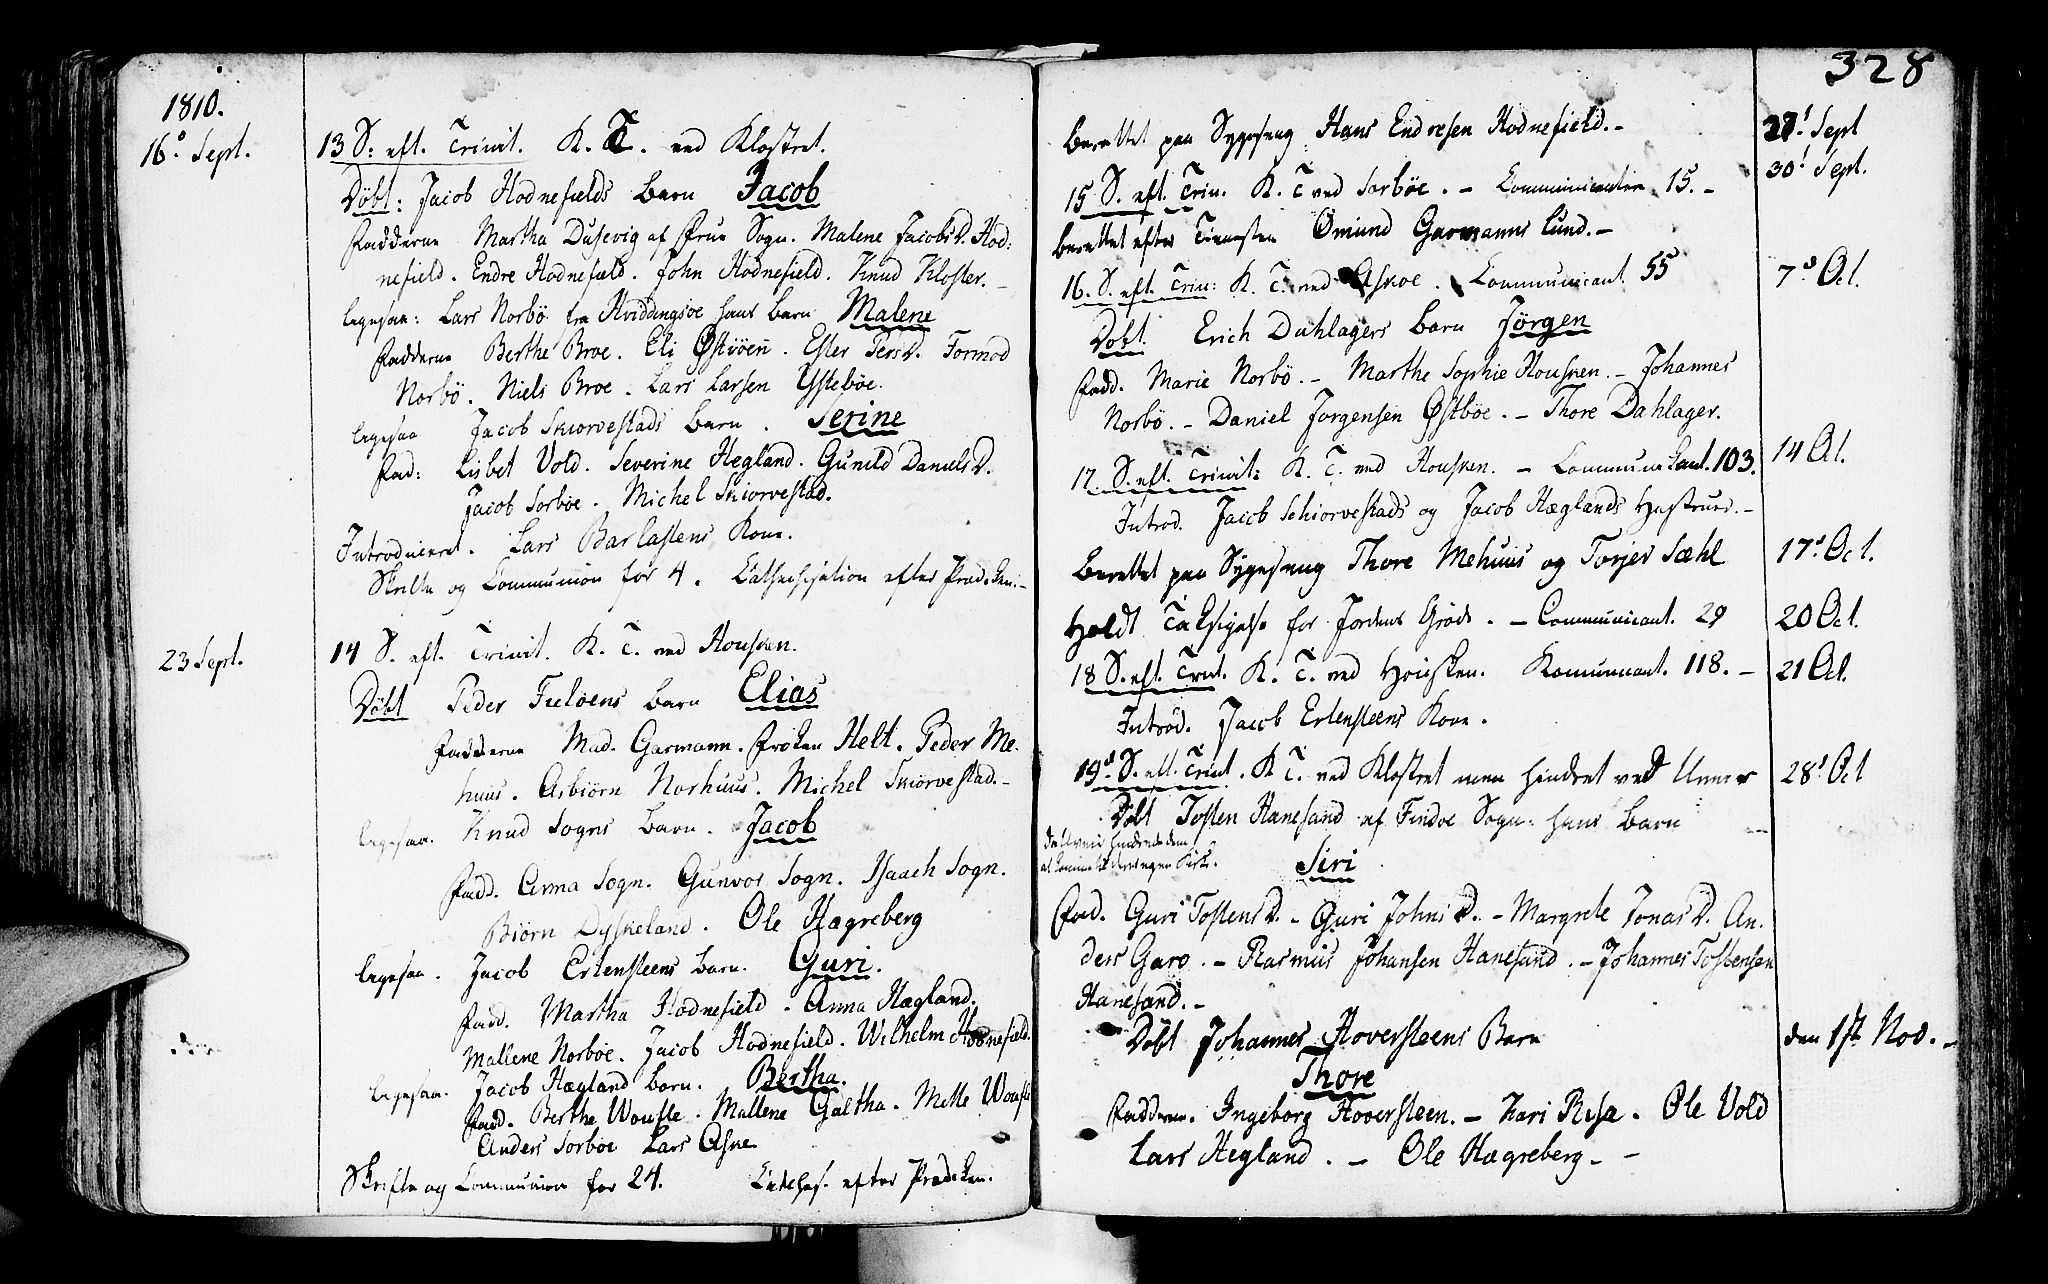 1810.
16. Sept. 13 S: eft. Trinit. K. T. ved Klostret.
Döbt: Jacob Hodnefields barn Jacob
Fadderne Martha Dusevig af Frue Sogn. Malene Jacobs D. Hod:
nefield. Endre Hodnefield. John Hodnefield. Knud Kloster.
ligesaa: Lars Norbö fra Hviddingsöe hans barn Malene
Fadderne Berthe Broe. Eli Östiöen. Ester Pers D. Tormod
Norbö. Niels Broe. Lars Larsen Ysteböe.
ligesaa Jacob Skiorvestads barn. Serine
Fad: Lisbet Vold. Severine Hegland. Gunild Daniels D.
Jacob Sorböe. Michel Skiorvestad.
Introduceret. Lars Barlastens Kone.
Skrifte og Communion for 4. Cathechisation efter Præd:ken.
23 Sept. 14 S. eft. Trinit. K. T. ved Housken.
Döbt Peder Fieloens barn Elias
Fadderne Mad. Garmann. Fröken Helt. Peder Me-
huus. Asbiörn Norhuus. Michel Skiörvestad.
ligesaa. Knud Sogns barn. Jacob
Fadd. Anna Sogn. Gunvor Sogn. Isaach Sogn.
Biörn Dyskeland. Ole Hægreberg
ligesaa. Jacob Ertensteens barn. Guri.
Fadd. Martha Hodnefield. Anna Hægland.
Mallene Norböe. Jacob Hodnefield. Wilhelm Hodnefield.
ligesaa. Jacob Hægland barn. Bertha.
Fadd. Berthe Woufle. Mallene Galtha. Mette Woufle
Anders Sorböe Lars Aske
Skrifte og Communion for 24. Catechis. efter Præd:ken.
328
berettet paa Sygeseng Hans Endresen Hodnefield. 27! Sept
15 S. eft. Trin. K. T ved Sorböe. - Communicanter 15. - 30! Sept.
berettet efter Tienesten Ömund Garmanns lund. -
16. S. eft. Trin: K. T. ved Askoe. Communicant. 55 7. Oct.
Döbt. Erich Dahlagers barn Jörgen
Fadd. Marie Norbö. - Marthe Sophie Housken. - Johannes
Norbö. - Daniel Jorgensen Östböe. - Thore Dahlager.
17. S. eft. Trinit: K. T. ved Housken. - Communikant. 103. 14 Oct.
Introd. Jacob Schiorvestads og Jacob Hæglands Hustruer. -
Berettet paa Sygeseng Thore Mehuus og Torjer Sæhl 17. Oct.
Holdt Taksigelse for Jordens Gröde. - Communicant. 29 20 Oct.
18 S. eft. Trint. K. T. ved Housken. Kommunicant. 118. - 21 Oct.
Introd. Jacob Ertensteens Kone.
19. S. eft. Trint. K T. ved Klostret men hindret ved Uveir 28. Oct
Döbt Tosten Hanesand af Findoe Sogn: hans barn
det Uveir hindrede dem
at komme til deres egen Kirke.
Siri
Fad. Guri Tostens D. - Guri Johns D. - Margrete Jonas D. An-
ders Garo. - Rasmus Johansen Hanesand. - Johannes Tostensen
Hanesand. -
Döbt Johannes Hoversteens Barn den 1st Nov. -
Thore
Fadderne. Ingeborg Hoversteen. - Kari Risa. Ole Vold
Lars Hegland. - Ole Hægreberg. -